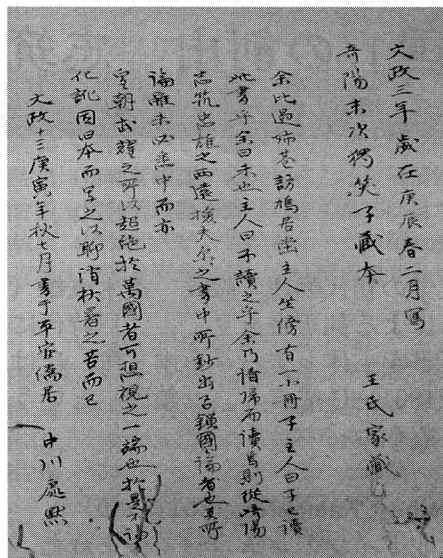 文政三年歳在庚辰春二月写
奇陽末次獨笑子蔵本　王氏家蔵
余比過姉巷訪鳩居堂主人坐傍有一小冊子主人曰子已讀
此書乎余曰未也主人曰不讀之乎余乃請帰而讀焉則従崎陽
志筑忠雄之西遠検夫尓之書中所鈔出名鎖國論者也其所
論雖未必悉中而亦
皇朝武之所以超絶於萬國者可想視之一端也於是不
訛因旧本而写之以聊消秋暑之苦而已
文政十三庚寅年秋七月書于平安僑居　中川處黙